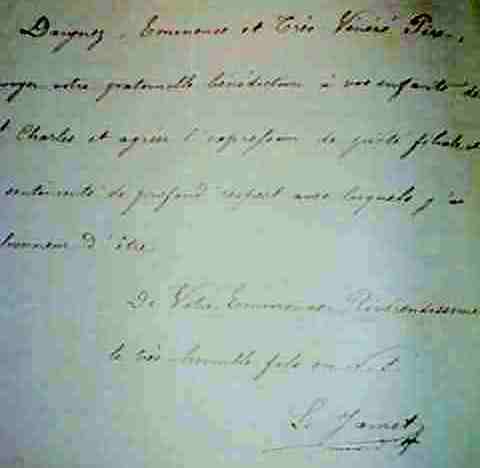 Daignez, Eminence et Très Vénéré Père,
votre paternelle bénédiction à vos enfants de
Charles et agréer l'expression de piété filiale et
sentiments de profond respect avec lesquels j'ai
honneur d'être
De Votre Eminence Révérendissime
le très humble fils en